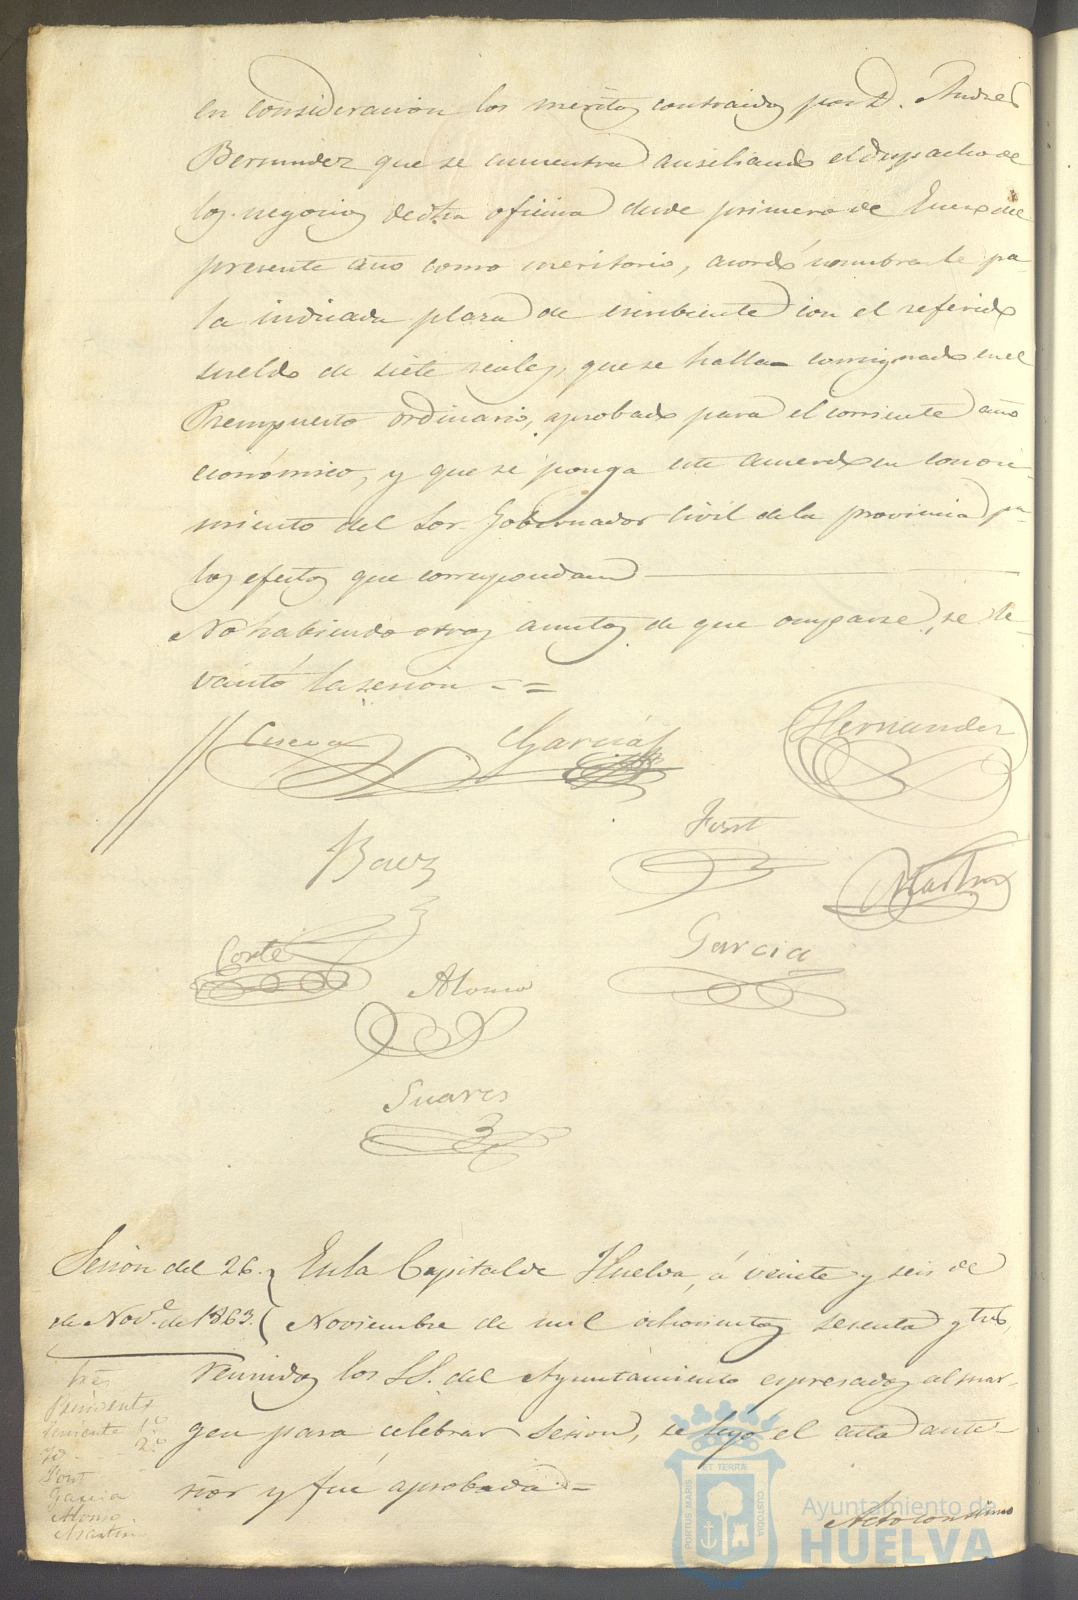 en consideracion los meritos contraidos por D. Andres
Bermudez que se encuentra ausiliando el despacho de
los negocios de dha oficina desde primero de Enero del
presente año como meritorio, acordó nombrarle pa-
ra indicada plaza de escribiente con el referido
sueldo de siete reales, que se halla consignado en el
Presupuesto ordinario, aprobado para el corriente año
económico, y que se ponga este acuerdo en conoci-
miento del Sor. Gobernador Civil de la provincia pa-
los efectos que correspondan
No habiendo otros asuntos de que ocuparse, se le-
vantó la sesion - =
García
Hernandez
Baez
Font
Martin
Corte
Garcia
Alonso
Suares
Sesion del 26.
de Nove. de 1863.
En la Capital de Huelva, á veinte y seis de
Noviembre de mil ochocientos sesenta y tres,
reunidos los SS. del Ayuntamiento espresados al mar-
gen para celebrar Sesion, se leyó el acta ante-
rior y fué aprobada =
Sres
Presidente
Teniente 1º
Id - 2º
Font
Garcia
Alonso
Martin
Acto continuo
PORTUS MARIS ET TERRAE CUSTODIA
Ayuntamiento de
HUELVA